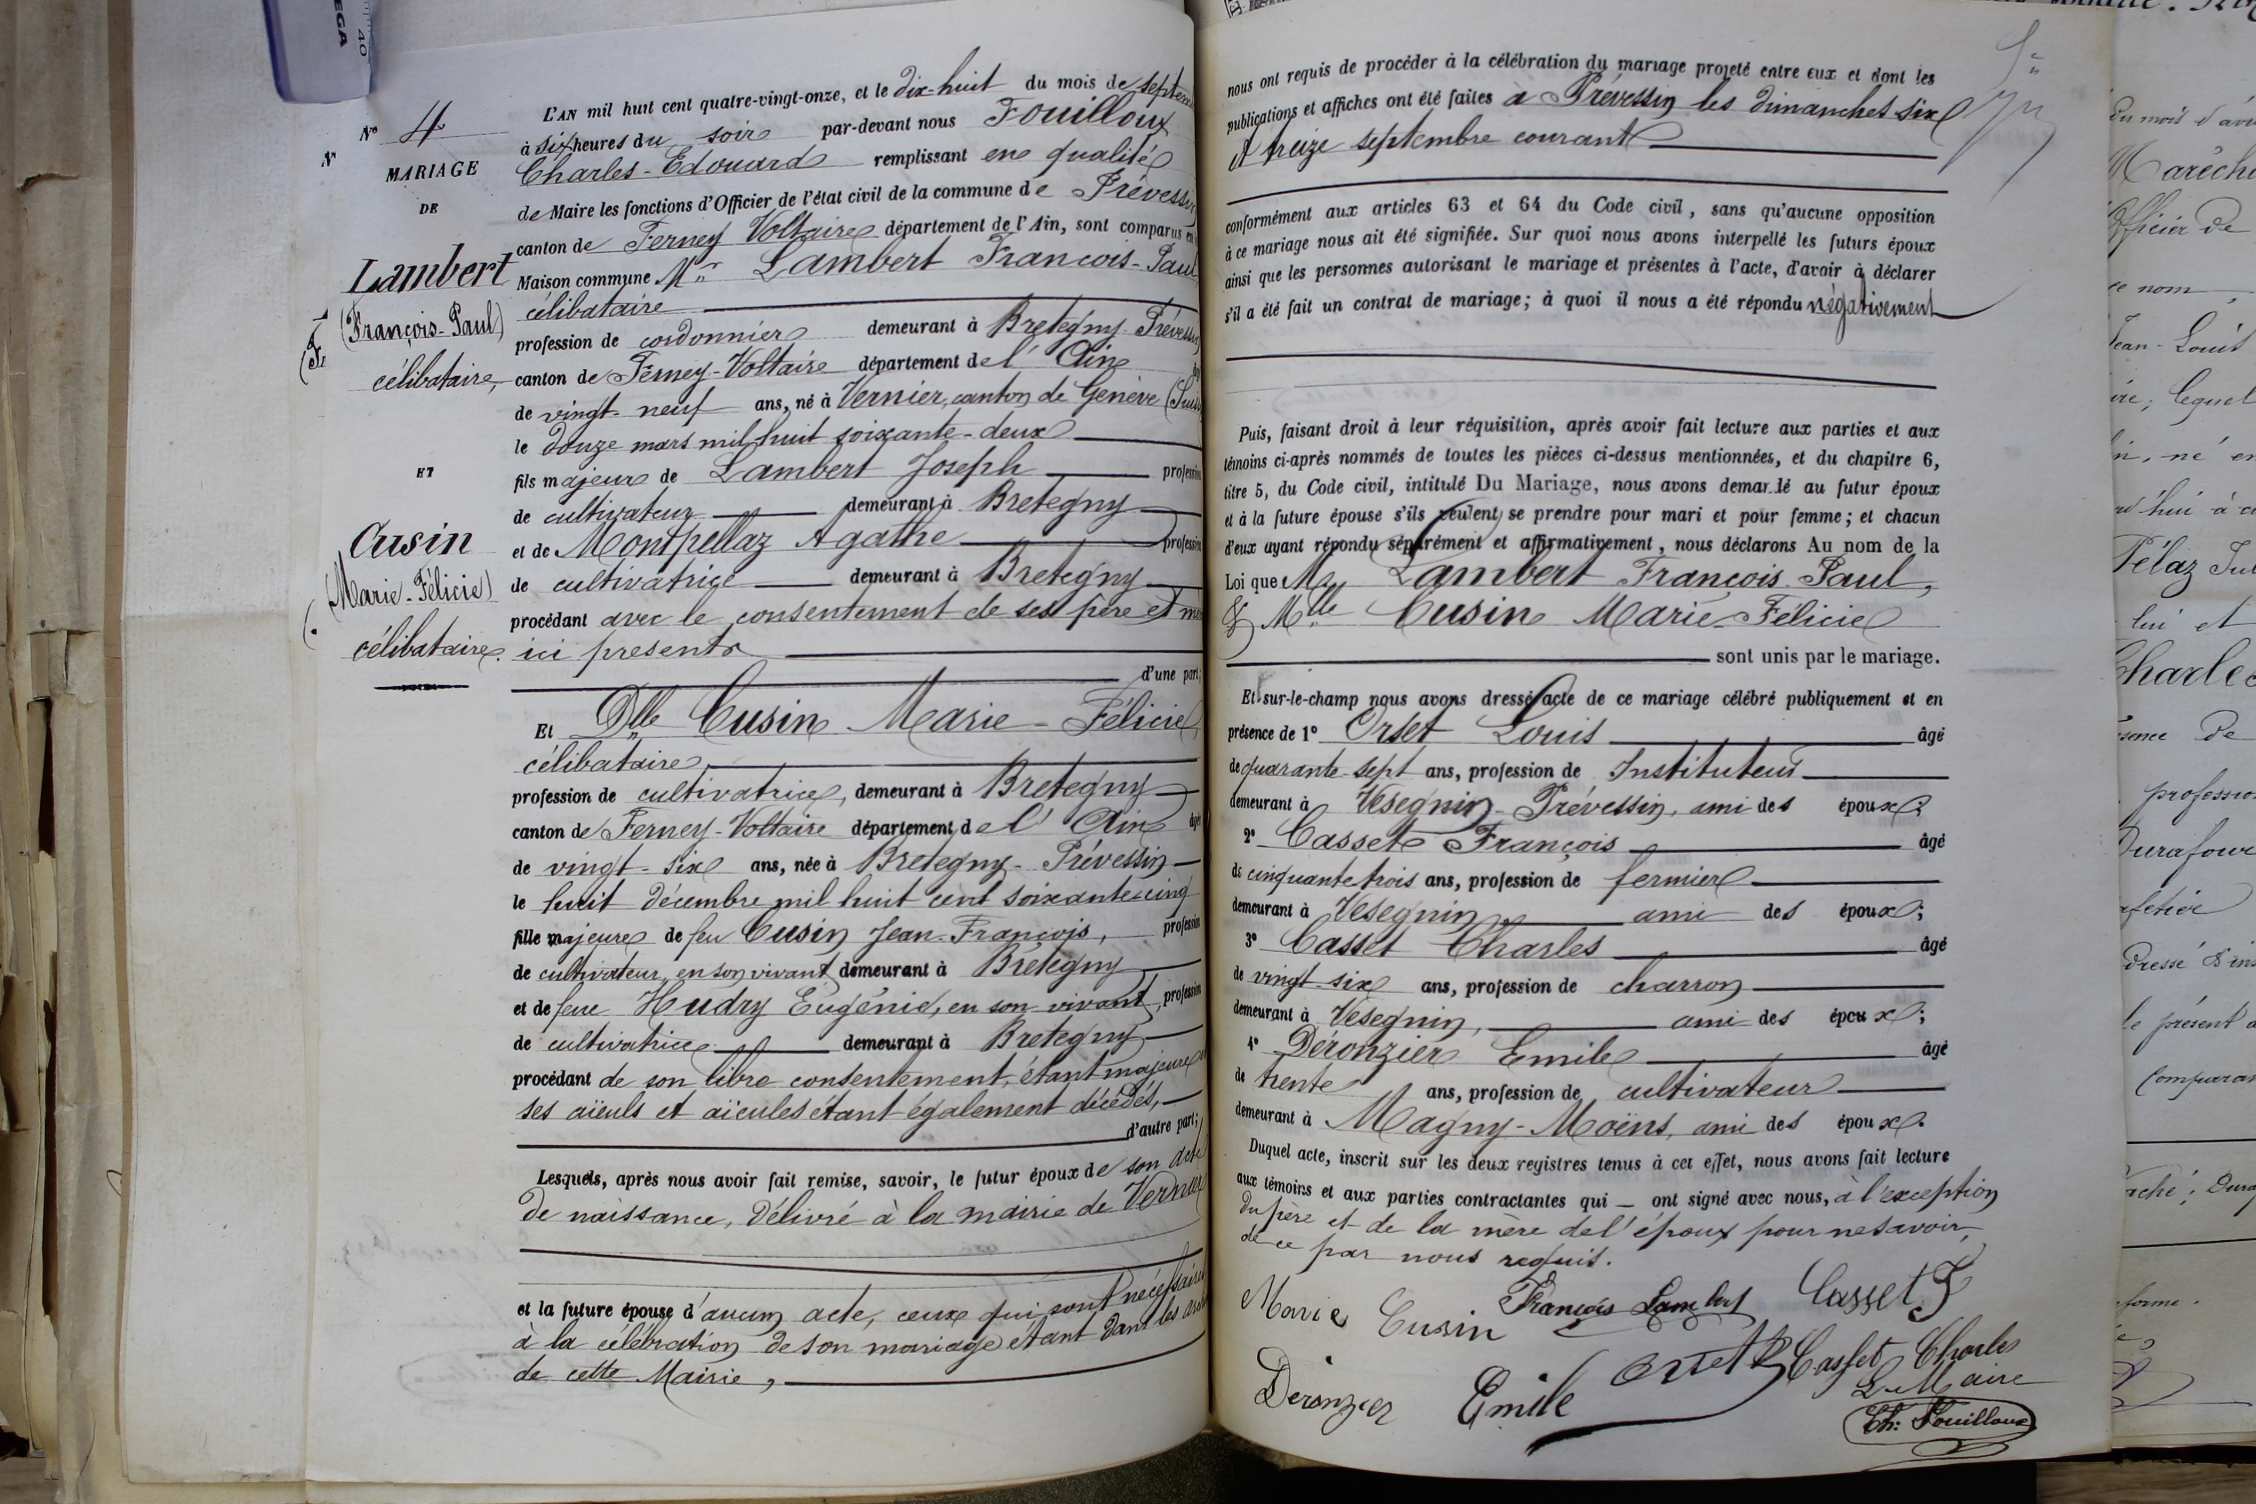 40
EGA
N° 4
N°
MARIAGE
DE
Lambert
(François-Paul)
célibataire,
ET
Cusin
(Marie-Félicie)
célibataire.
L'AN mil huit cent quatre-vingt-onze, et le dix-huit du mois de septem
à six heures du soir par-devant nous Fouilloux
Charles-Edouard remplissant en qualité
de Maire les fonctions d'Officier de l'état civil de la commune de Prévessin
canton de Ferney Voltaire département de l'Ain, sont comparus en
Maison commune Mr Lambert François-Paul
célibataire
profession de cordonnier demeurant à Bretegny-Prévessin
canton de Ferney-Voltaire département de l'Ain
de vingt-neuf ans, né à Vernier, canton de Genève (Suis
le douze mars mil huit soixante-deux
fils majeur de Lambert Joseph profession
de cultivateur demeurant à Bretegny
et de Montpellaz Agathe profession
de cultivatrice demeurant à Bretegny
procédant avec le consentement de ses père et mè
ici présents
d'une part,
Et Dlle Cusin Marie-Félicie,
célibataire,
profession de cultivatrice, demeurant à Bretegny
canton de Ferney-Voltaire département de l'Ain âgée
de vingt-six ans, née à Bretegny-Prévessin
le huit décembre mil huit cent soixante-cinq
fille majeure de feu Cusin Jean-François, profession
de cultivateur en son vivant demeurant à Bretegny
et de feue Hudry Eugénie, en son vivant, profession
de cultivatrice demeurant à Bretegny
procédant de son libre consentement, étant majeure et
ses aïeuls et aïeules étant également décédés,
d'autre part;
Lesquels, après nous avoir fait remise, savoir, le futur époux de son acte
de naissance, délivré à la mairie de Vernier
et la future épouse d'aucun acte, ceux qui sont nécessaires
à la célébration de son mariage étant dans les arch
de cette Mairie,
nous ont requis de procéder à la célébration du mariage projeté entre eux et dont les
publications et affiches ont été faites à Prévessin les dimanches six
et treize septembre courant
conformément aux articles 63 et 64 du Code civil, sans qu'aucune opposition
à ce mariage nous ait été signifiée. Sur quoi nous avons interpellé les futurs époux
ainsi que les personnes autorisant le mariage et présentes à l'acte, d'avoir à déclarer
s'il a été fait un contrat de mariage; à quoi il nous a été répondu négativement
Puis, faisant droit à leur réquisition, après avoir fait lecture aux parties et aux
témoins ci-après nommés de toutes les pièces ci-dessus mentionnées, et du chapitre 6,
titre 5, du Code civil, intitulé Du Mariage, nous avons demandé au futur époux
et à la future épouse s'ils veulent se prendre pour mari et pour femme; et chacun
d'eux ayant répondu séparément et affirmativement, nous déclarons Au nom de la
Loi que Mr Lambert François Paul,
& Mlle Cusin Marie-Félicie
sont unis par le mariage.
Et sur-le-champ nous avons dressé acte de ce mariage célébré publiquement et en
présence de 1° Orset Louis âgé
de quarante-sept ans, profession de Instituteur
demeurant à Vesegnin-Prévessin, ami des époux;
2° Casset François âgé
de cinquante trois ans, profession de fermier
demeurant à Vesegnin, ami des époux;
3° Casset Charles âgé
de vingt-six ans, profession de charron
demeurant à Vesegnin, ami des époux;
4° Déronzier Emile âgé
de trente ans, profession de cultivateur
demeurant à Magny-Moëns, ami des époux.
Duquel acte, inscrit sur les deux registres tenus à cet effet, nous avons fait lecture
aux témoins et aux parties contractantes qui — ont signé avec nous, à l'exception
du père et de la mère de l'époux pour ne savoir,
de ce par nous requis.
Marie Cusin François Lambert Casset F
Deronzier Emile Orset L Casset Charles
Le Maire
Ch: Fouilloux
du mois d'avr
Maréch
Officier de
ce nom,
Jean-Louis
lequel
né en
Pélaz Jul
lui et
Charles
profession
Durafour
dressé
le présent a
comparan